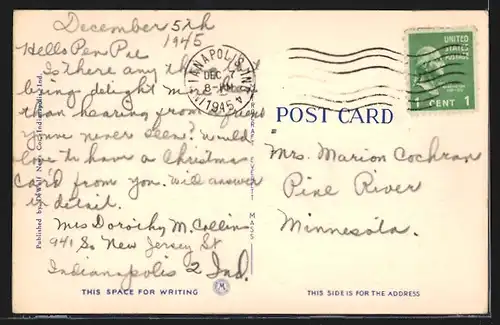 December 5th
1945
Hello Pen Pal
Is there any th
bring delight more
than hearing from friend
you've never seen? Would
love to have a Christmas
card from you. Will answer
in detail.
Mrs Dorothy M. Collins
941 So New Jersey St
Indianapolis 2 Ind.
THIS SPACE FOR WRITING
INDIANAPOLIS, IND.
DEC 7
8-PM
1945
UNITED
STATES
POSTAGE
1 CENT 1
POST CARD
Mrs. Marion Cochran
Pine River
Minnesota.
THIS SIDE IS FOR THE ADDRESS